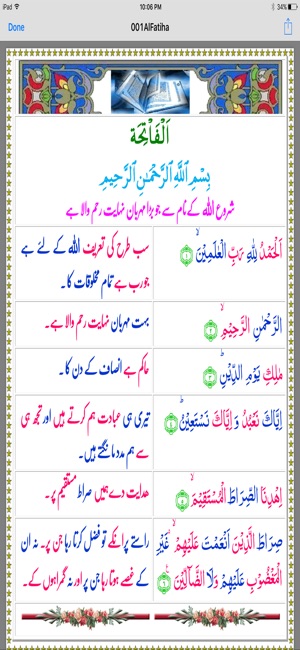 iPad 10:06 PM
Done 001AlFatiha
اَلْفَاتِحَة
بِسْمِ اللّٰهِ الرَّحْمٰنِ الرَّحِيْمِ
شروع اللہ کے نام سے جو بڑا مہربان نہایت رحم والا ہے
اَلْحَمْدُ لِلّٰهِ رَبِّ الْعٰلَمِيْنَۙ ۝۱
سب طرح کی تعریف اللہ کے لئے ہے
جو رب ہے تمام مخلوقات کا۔
الرَّحْمٰنِ الرَّحِيْمِۙ ۝۲
بہت مہربان نہایت رحم والا ہے۔
مٰلِكِ يَوْمِ الدِّيْنِؕ ۝۳
حاکم ہے انصاف کے دن کا۔
اِيَّاكَ نَعْبُدُ وَاِيَّاكَ نَسْتَعِيْنُؕ ۝۴
تیری ہی عبادت ہم کرتے ہیں اور تجھ ہی
سے ہم مدد مانگتے ہیں۔
اِهْدِنَا الصِّرَاطَ الْمُسْتَقِيْمَۙ ۝۵
ہدایت دے ہمیں صراط مستقیم پر۔
صِرَاطَ الَّذِيْنَ اَنْعَمْتَ عَلَيْهِمْۙ غَيْرِ
الْمَغْضُوْبِ عَلَيْهِمْ وَلَا الضَّآلِّيْنَ ۝۶
راستے پر انکے تو فضل کرتا رہا جن پر۔ نہ ان
کے غصے ہوتا رہا جن پر اور نہ گمراہوں کے۔